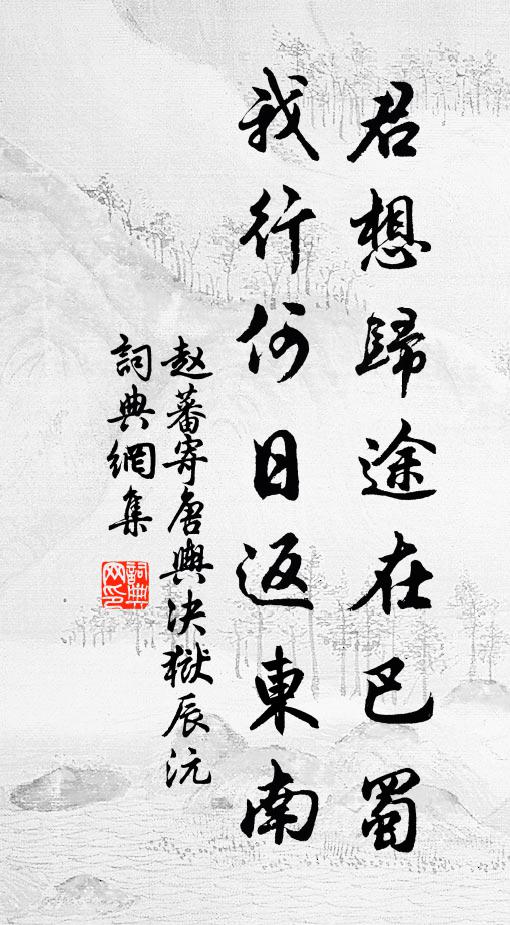 君想歸途在巴蜀
我行何日返東南
赵蕃寄唐與决獄辰沅
詞典網集
詞典網印